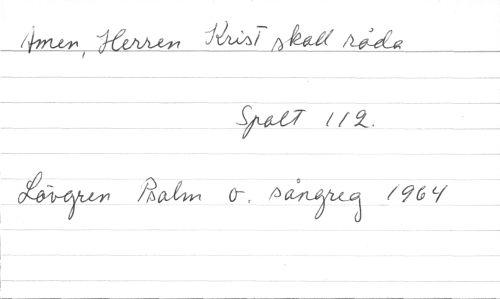 Amen, Herren Krist skall råda
Spalt 112.
Lövgren Psalm o. sångreg 1964